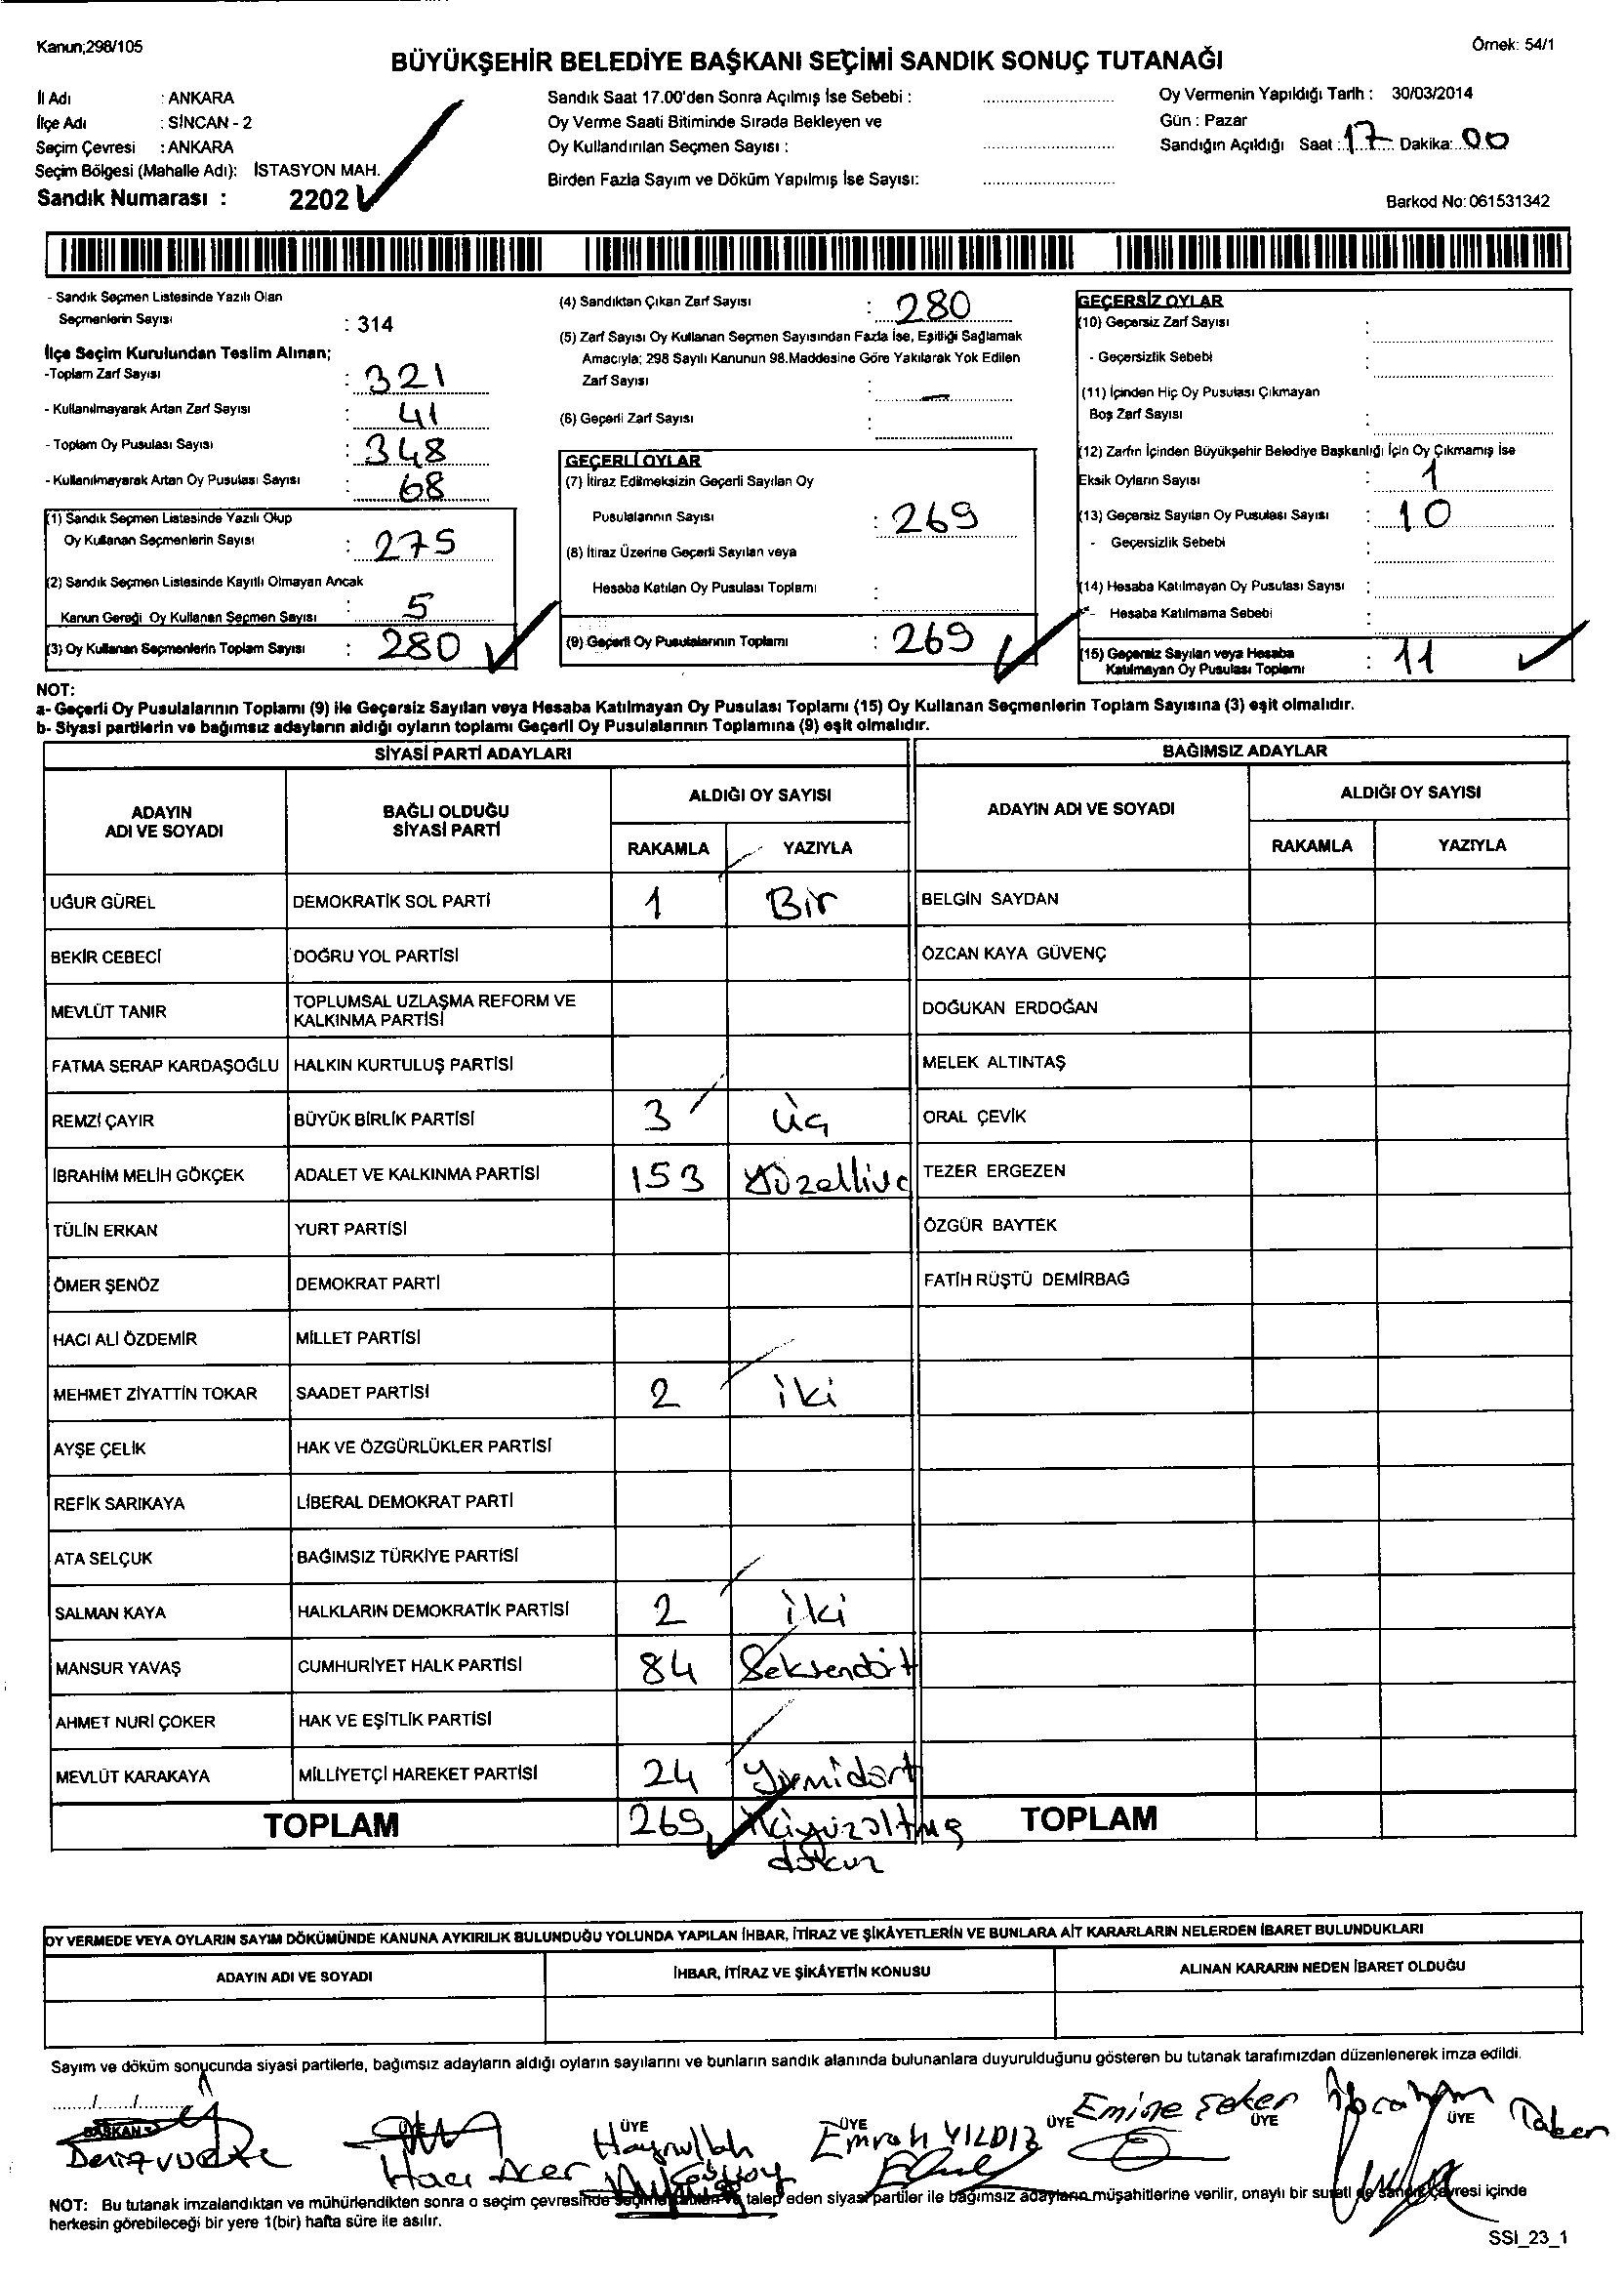 Kanun;298/105
Örnek: 54/1
BÜYÜKŞEHİR BELEDİYE BAŞKANI SEÇİMİ SANDIK SONUÇ TUTANAĞI
İl Adı : ANKARA
İlçe Adı : SİNCAN - 2
Seçim Çevresi : ANKARA
Seçim Bölgesi (Mahalle Adı): İSTASYON MAH.
Sandık Numarası : 2202
Sandık Saat 17.00'den Sonra Açılmış İse Sebebi :
Oy Verme Saati Bitiminde Sırada Bekleyen ve
Oy Kullandırılan Seçmen Sayısı :
Birden Fazla Sayım ve Döküm Yapılmış İse Sayısı:
Oy Vermenin Yapıldığı Tarih : 30/03/2014
Gün : Pazar
Sandığın Açıldığı Saat : 17 Dakika: 00
Barkod No: 061531342
- Sandık Seçmen Listesinde Yazılı Olan
Seçmenlerin Sayısı : 314
İlçe Seçim Kurulundan Teslim Alınan;
-Toplam Zarf Sayısı : 321
- Kullanılmayarak Artan Zarf Sayısı : 41
- Toplam Oy Pusulası Sayısı : 348
- Kullanılmayarak Artan Oy Pusulası Sayısı : 68
(1) Sandık Seçmen Listesinde Yazılı Olup
Oy Kullanan Seçmenlerin Sayısı : 275
(2) Sandık Seçmen Listesinde Kayıtlı Olmayan Ancak
Kanun Gereği Oy Kullanan Seçmen Sayısı : 5
(3) Oy Kullanan Seçmenlerin Toplam Sayısı : 280
(4) Sandıktan Çıkan Zarf Sayısı : 280
(5) Zarf Sayısı Oy Kullanan Seçmen Sayısından Fazla İse, Eşitliği Sağlamak
Amacıyla; 298 Sayılı Kanunun 98.Maddesine Göre Yakılarak Yok Edilen
Zarf Sayısı : —
(6) Geçerli Zarf Sayısı :
GEÇERLİ OYLAR
(7) İtiraz Edilmeksizin Geçerli Sayılan Oy
Pusulalarının Sayısı : 269
(8) İtiraz Üzerine Geçerli Sayılan veya
Hesaba Katılan Oy Pusulası Toplamı :
(9) Geçerli Oy Pusulalarının Toplamı : 269
GEÇERSİZ OYLAR
(10) Geçersiz Zarf Sayısı :
- Geçersizlik Sebebi :
(11) İçinden Hiç Oy Pusulası Çıkmayan
Boş Zarf Sayısı :
(12) Zarfın İçinden Büyükşehir Belediye Başkanlığı İçin Oy Çıkmamış İse
Eksik Oyların Sayısı : 1
(13) Geçersiz Sayılan Oy Pusulası Sayısı : 10
- Geçersizlik Sebebi :
(14) Hesaba Katılmayan Oy Pusulası Sayısı :
- Hesaba Katılmama Sebebi :
(15) Geçersiz Sayılan veya Hesaba
Katılmayan Oy Pusulası Toplamı : 11
NOT:
a- Geçerli Oy Pusulalarının Toplamı (9) ile Geçersiz Sayılan veya Hesaba Katılmayan Oy Pusulası Toplamı (15) Oy Kullanan Seçmenlerin Toplam Sayısına (3) eşit olmalıdır.
b- Siyasi partilerin ve bağımsız adayların aldığı oyların toplamı Geçerli Oy Pusulalarının Toplamına (9) eşit olmalıdır.
SİYASİ PARTİ ADAYLARI
ADAYIN ADI VE SOYADI
BAĞLI OLDUĞU SİYASİ PARTİ
ALDIĞI OY SAYISI
RAKAMLA YAZIYLA
UĞUR GÜREL DEMOKRATİK SOL PARTİ 1 Bir
BEKİR CEBECİ DOĞRU YOL PARTİSİ
MEVLÜT TANIR TOPLUMSAL UZLAŞMA REFORM VE KALKINMA PARTİSİ
FATMA SERAP KARDAŞOĞLU HALKIN KURTULUŞ PARTİSİ
REMZİ ÇAYIR BÜYÜK BİRLİK PARTİSİ 3 Üç
İBRAHİM MELİH GÖKÇEK ADALET VE KALKINMA PARTİSİ 153 Yüzelliüç
TÜLİN ERKAN YURT PARTİSİ
ÖMER ŞENÖZ DEMOKRAT PARTİ
HACI ALİ ÖZDEMİR MİLLET PARTİSİ
MEHMET ZİYATTİN TOKAR SAADET PARTİSİ 2 iki
AYŞE ÇELİK HAK VE ÖZGÜRLÜKLER PARTİSİ
REFİK SARIKAYA LİBERAL DEMOKRAT PARTİ
ATA SELÇUK BAĞIMSIZ TÜRKİYE PARTİSİ
SALMAN KAYA HALKLARIN DEMOKRATİK PARTİSİ 2 iki
MANSUR YAVAŞ CUMHURİYET HALK PARTİSİ 84 Seksendört
AHMET NURİ ÇOKER HAK VE EŞİTLİK PARTİSİ
MEVLÜT KARAKAYA MİLLİYETÇİ HAREKET PARTİSİ 24 Yirmidört
TOPLAM 269 ikiyüzaltmış
dokuz
BAĞIMSIZ ADAYLAR
ADAYIN ADI VE SOYADI
ALDIĞI OY SAYISI
RAKAMLA YAZIYLA
BELGİN SAYDAN
ÖZCAN KAYA GÜVENÇ
DOĞUKAN ERDOĞAN
MELEK ALTINTAŞ
ORAL ÇEVİK
TEZER ERGEZEN
ÖZGÜR BAYTEK
FATİH RÜŞTÜ DEMİRBAĞ
TOPLAM
OY VERMEDE VEYA OYLARIN SAYIM DÖKÜMÜNDE KANUNA AYKIRILIK BULUNDUĞU YOLUNDA YAPILAN İHBAR, İTİRAZ VE ŞİKÂYETLERİN VE BUNLARA AİT KARARLARIN NELERDEN İBARET BULUNDUKLARI
ADAYIN ADI VE SOYADI İHBAR, İTİRAZ VE ŞİKÂYETİN KONUSU ALINAN KARARIN NEDEN İBARET OLDUĞU
Sayım ve döküm sonucunda siyasi partilerle, bağımsız adayların aldığı oyların sayılarını ve bunların sandık alanında bulunanlara duyurulduğunu gösteren bu tutanak tarafımızdan düzenlenerek imza edildi.
BAŞKAN
ÜYE ÜYE ÜYE ÜYE ÜYE
Hacı Acer
Hayrullah
Emrah YILDIZ
Emine Şeker
İbrahim
NOT: Bu tutanak imzalandıktan ve mühürlendikten sonra o seçim çevresinde talep eden siyasi partiler ile bağımsız adayların müşahitlerine verilir, onaylı bir sureti de sandık çevresi içinde
herkesin görebileceği bir yere 1(bir) hafta süre ile asılır.
SSI_23_1